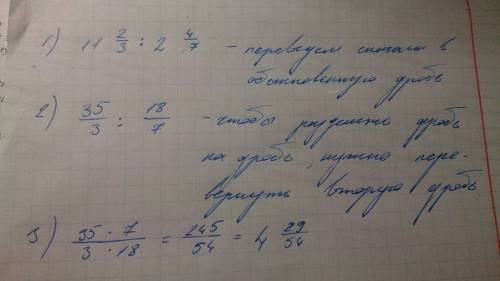 1) 11 2/3 : 2 4/7 - переведем сначала в
обыкновенную дробь
2) 35/3 : 18/7 - чтобы разделить дробь
на дробь, нужно пере-
вернуть вторую дробь
3) 35 · 7 / 3 · 18 = 245/54 = 4 29/54